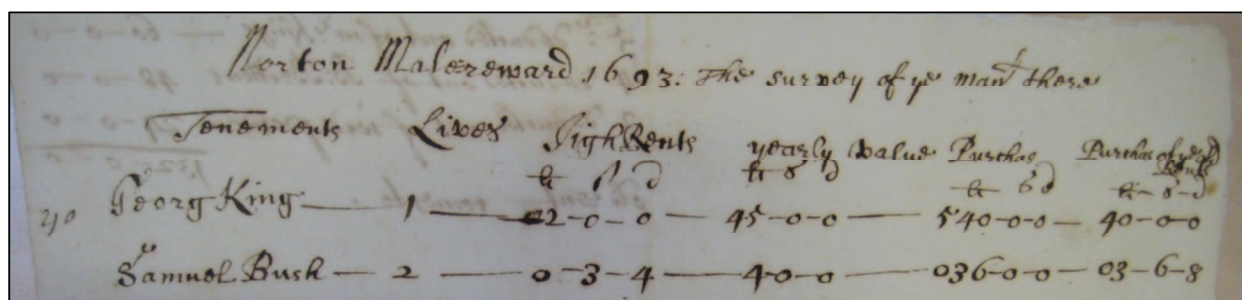 Norton Malereward 1693: The survey of ye man^r there
Tenements Lives High Rents yearly value Purchas Purchas of ye
li s d li s d li s d li s d
Georg King — 1 — 02-0-0 — 45-0-0 — 540-0-0 — 40-0-0
Samuel Bush — 2 — 0-3-4 — 4-0-0 — 036-0-0 — 03-6-8